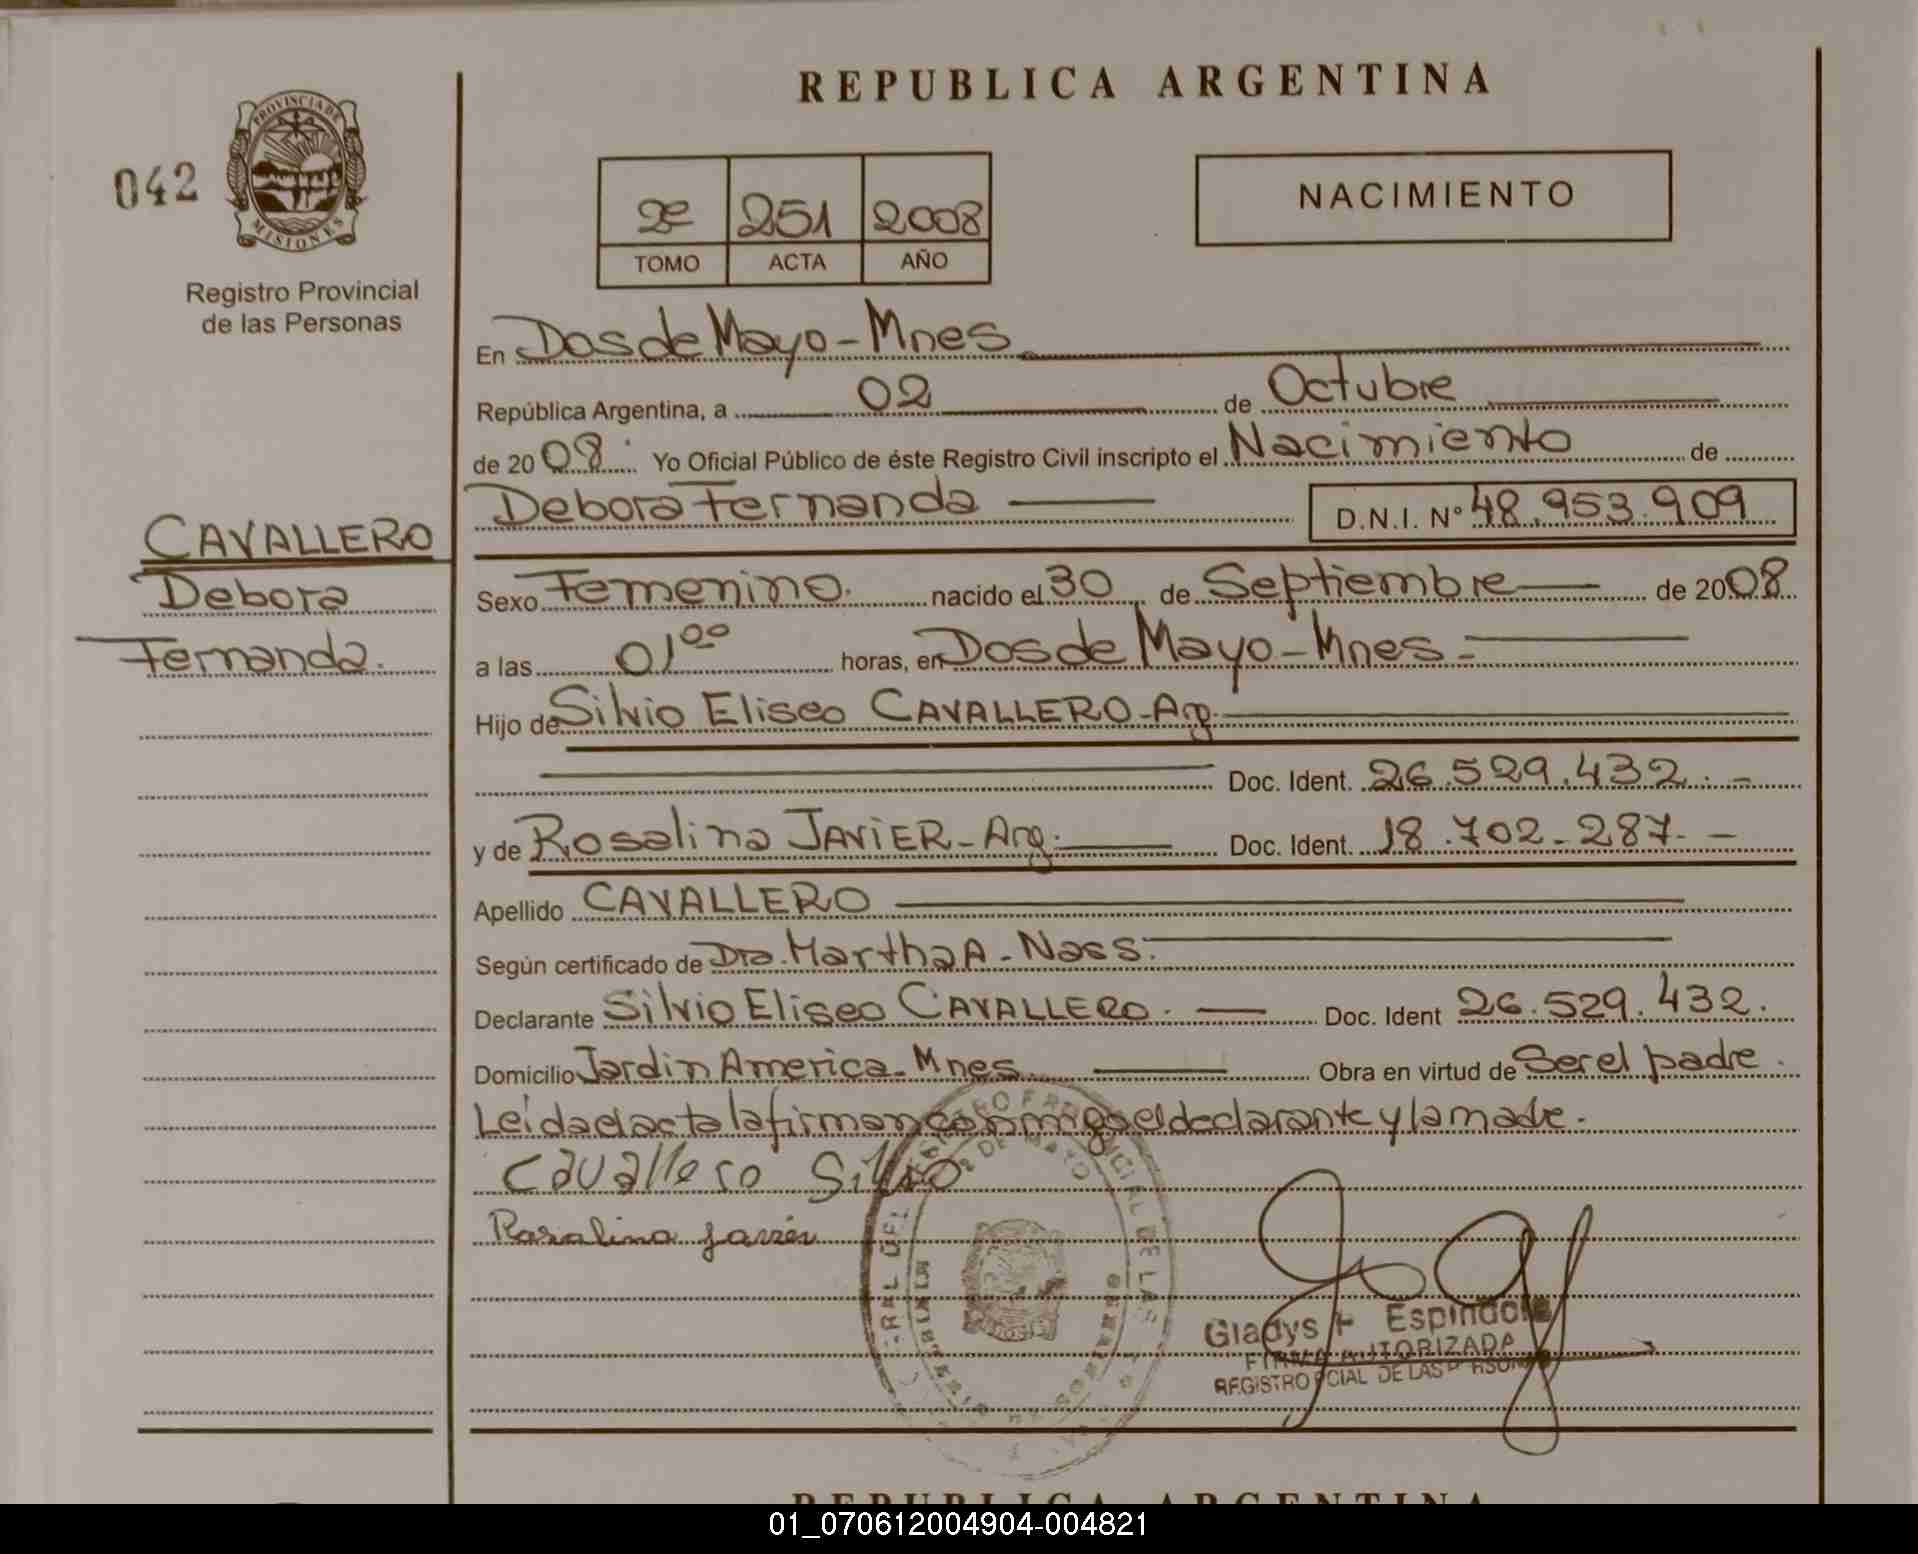 REPUBLICA ARGENTINA
042
PROVINCIA DE
MISIONES
Registro Provincial
de las Personas
2º 251 2008
TOMO ACTA AÑO
NACIMIENTO
En Dos de Mayo - Mnes
República Argentina, a 02 de Octubre
de 2008. Yo Oficial Público de éste Registro Civil inscripto el Nacimiento de
Debora Fernanda D.N.I. Nº 48.953.909
CAVALLERO
Debora
Fernanda.
Sexo Femenino. nacido el 30 de Septiembre de 2008
a las 01 00 horas, en Dos de Mayo - Mnes -
Hijo de Silvio Eliseo CAVALLERO - Arg.
Doc. Ident. 26.529.432. -
y de Rosalina JAVIER - Arg. Doc. Ident. 18.702-287. -
Apellido CAVALLERO
Según certificado de Dra. Martha A. Nass.
Declarante Silvio Eliseo CAVALLERO. Doc. Ident 26.529.432.
Domicilio Jardin America - Mnes. Obra en virtud de Ser el padre.
Leida el acta la firman conmigo el declarante y la madre.
Cavallero Silvio
Rosalina Javier
Gladys F Espindola
FIRMA AUTORIZADA
REGISTRO PCIAL DE LAS PERSONAS
REPUBLICA ARGENTINA
01_070612004904-004821